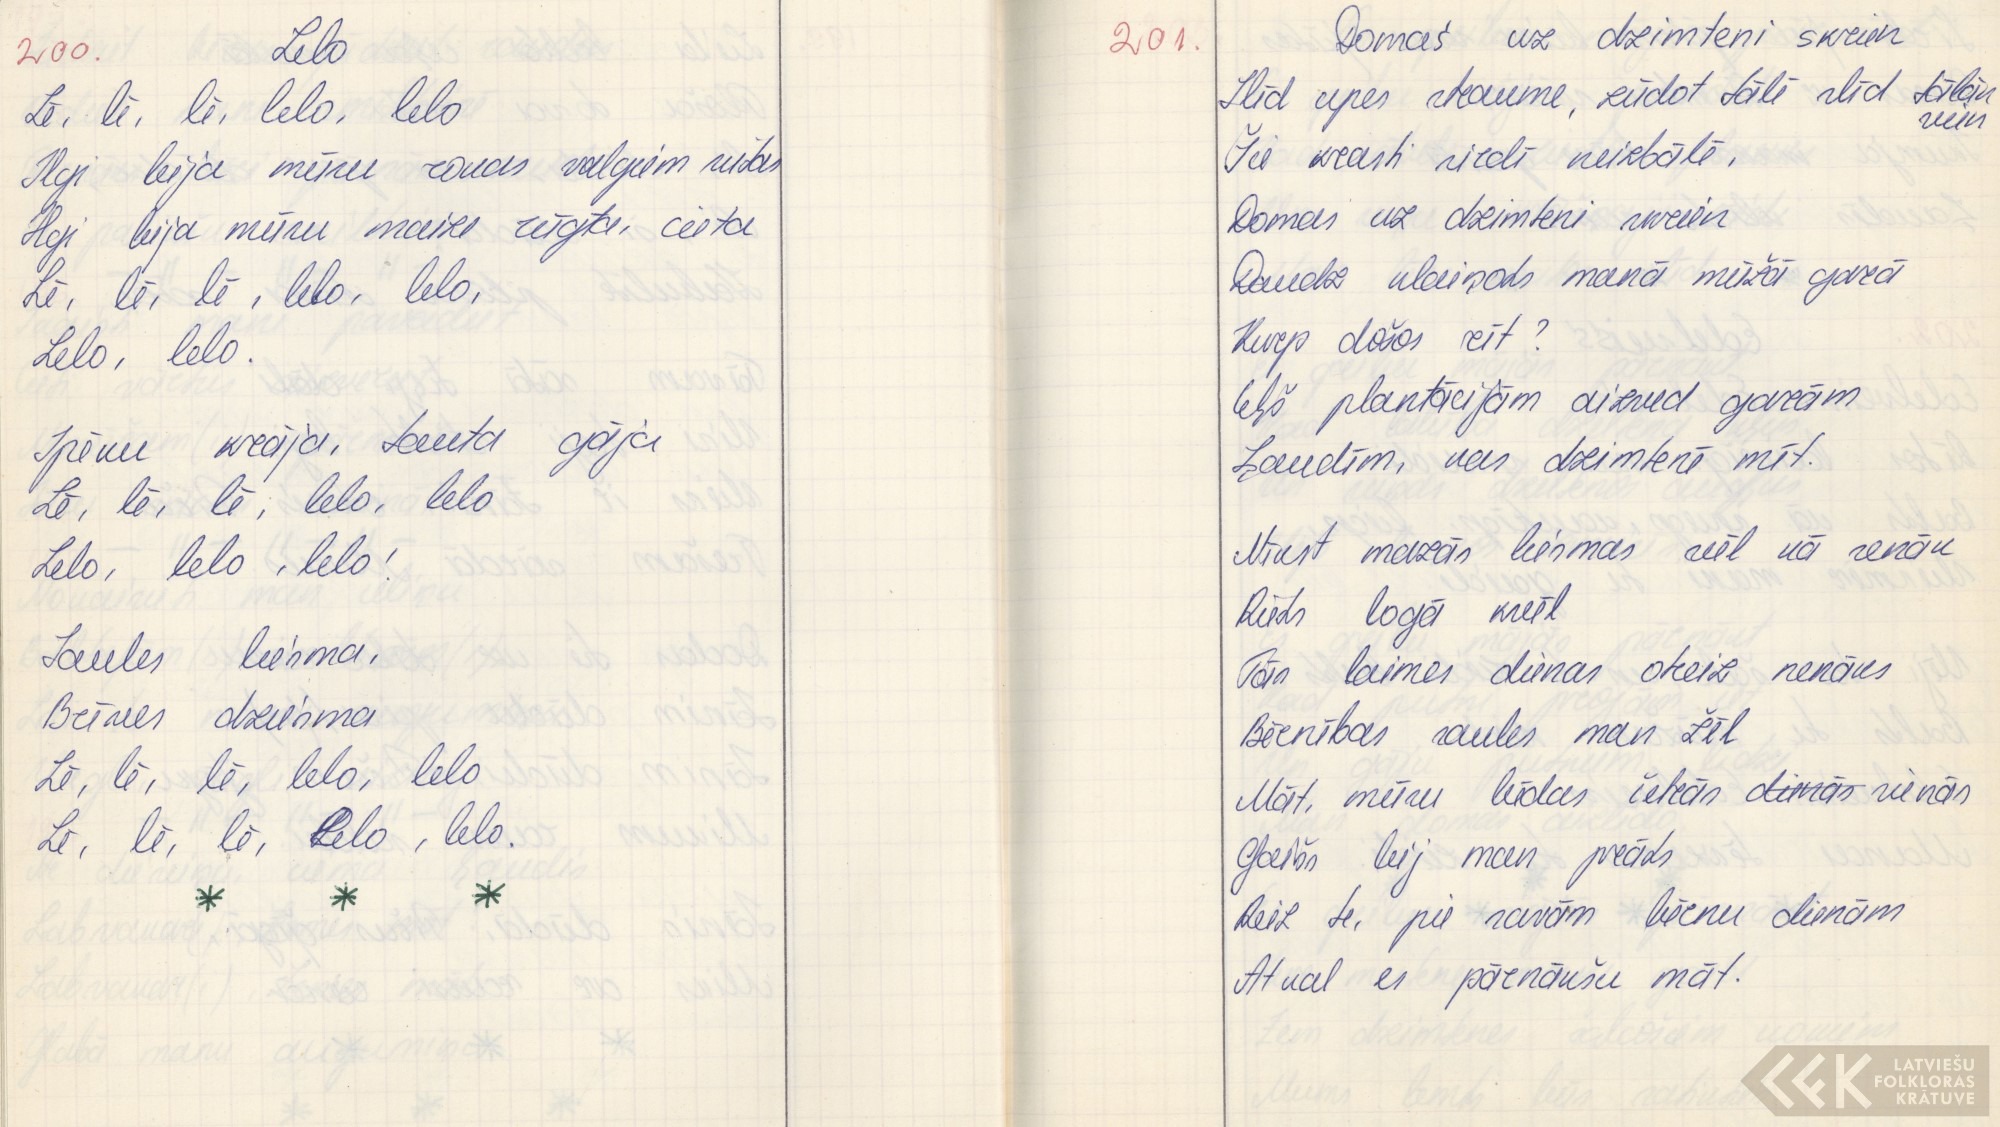 200. Lelo
Lē, lē, lē, lelo, lelo
Ilgi bija mūsu rokas valgiem sistas
Ilgi bija mūsu maize rūgta, cieta
Lē, lē, lē, lelo, lelo,
Lelo, lelo.
Spēku krāja, tauta gāja
Lē, lē, lē, lelo, lelo
Lelo, lelo, lelo!
Saules liesma,
Brīves dziesma
Lē, lē, lē, lelo, lelo
Lē, lē, lē, lelo, lelo.
* * *
201. Domas uz dzimteni skrien
Slīd upes straume, zūdot tālē slīd tālān
vien
Šie krasti sirdī neizbālē,
Domas uz dzimteni skrien
Daudz klaiņots manā mūžā garā
Kurp došos rīt?
Ceļš plantācijām aizved garām
Ļaudīm, kas dzimtenē mīt.
Mirst mazās liesmas vēl kā senāk
Riets logā kvēl
Tās laimes dienas otreiz nenāks
Bērnības saules man žēl
Māt, mūsu būdas četrās dienās sienās
Gaišs bij man prāts
Reiz te, pie savām bērnu dienām
Atkal es pārnākšu māt.
LATVIEŠU
FOLKLORAS
KRĀTUVE